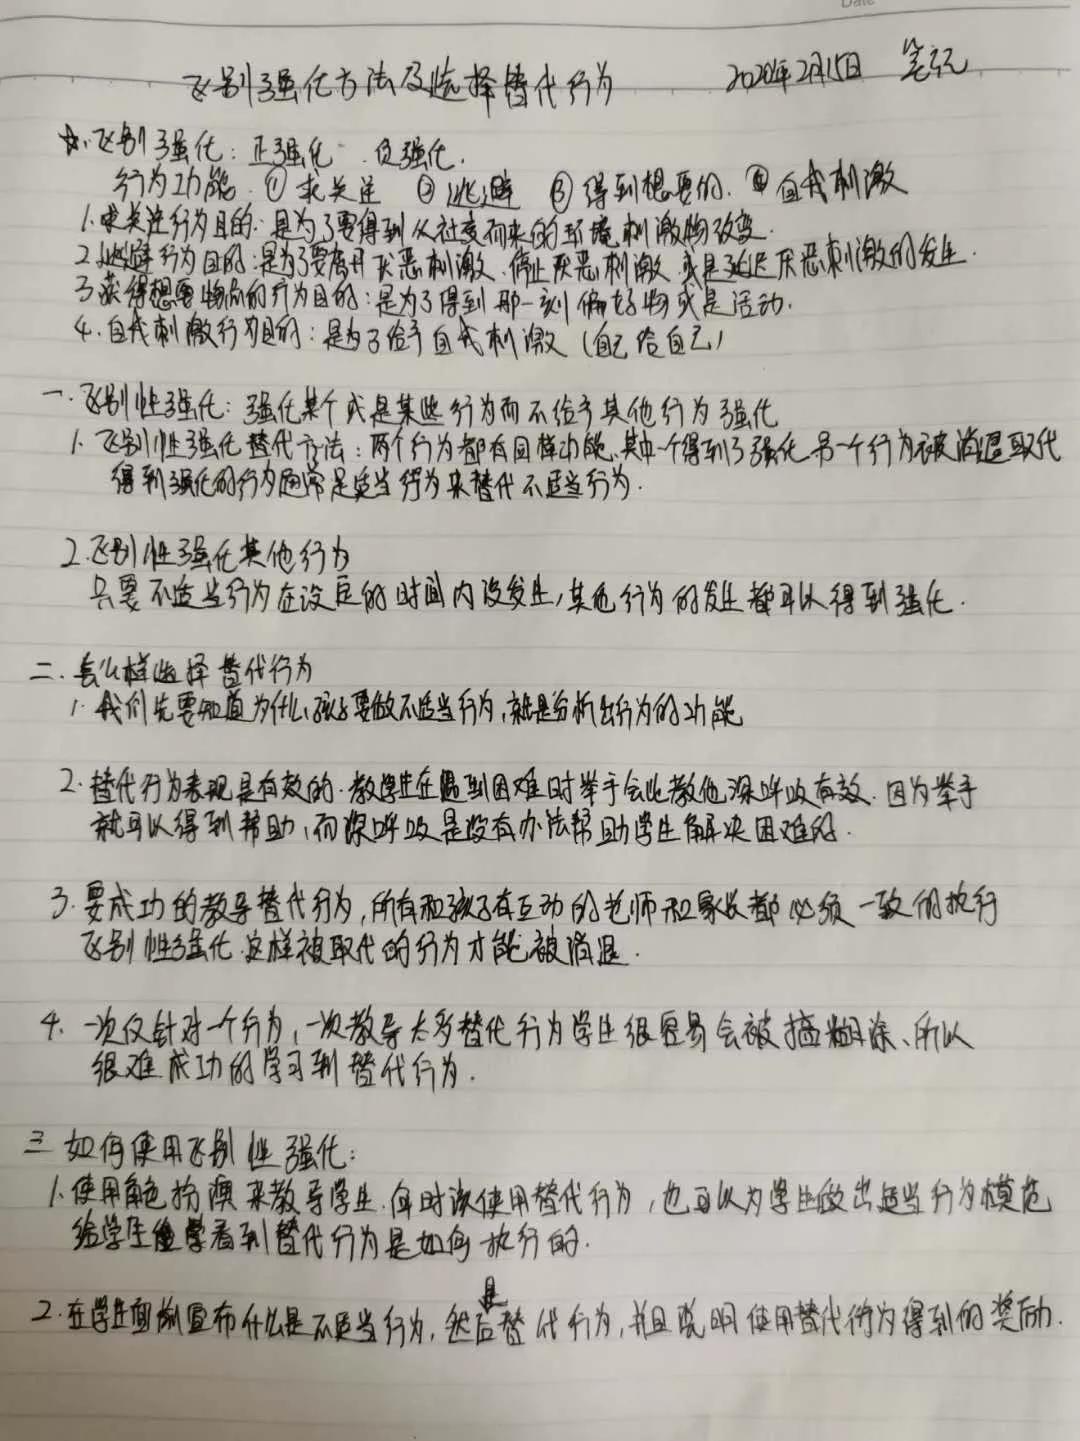 区别强化方法及选择替代行为 2020年2月15日 笔记
☆.区别强化：正强化 . 负强化.
行为功能 ①求关注 ②逃避 ③得到想要的. ④自我刺激
1.求关注行为目的：是为了要得到从社交而来的环境刺激物改变.
2逃避行为目的：是为了要离开厌恶刺激、停止厌恶刺激 或是延迟厌恶刺激的发生.
3获得想要物品的行为目的：是为了得到那一刻偏好物或是活动.
4.自我刺激行为目的：是为了给予自我刺激（自己给自己）
一.区别性强化：强化某个或是某些行为而不给予其他行为强化
1.区别性强化替代方法：两个行为都有同样功能.其中一个得到了强化 另一个行为被消退取代
得到强化的行为通常是适当行为来替代不适当行为.
2.区别性强化其他行为
只要不适当行为在设定的时间内没发生，其他行为的发生都可以得到强化.
二.怎么样选择替代行为
1.我们先要知道为什么孩子要做不适当行为,就是分析出行为的功能
2.替代行为表现是有效的.教学生在遇到困难时举手会比教他深呼吸有效.因为举手
就可以得到帮助,而深呼吸是没有办法帮助学生解决困难的.
3.要成功的教导替代行为,所有和孩子有互动的老师和家长都必须一致的执行
区别性强化.这样被取代的行为才能被消退.
4.一次仅针对一个行为,一次教导太多替代行为学生很容易会被搞糊涂、所以
很难成功的学习到替代行为.
三 如何使用区别性强化：
1.使用角色扮演来教导学生.何时该使用替代行为,也可以为学生做出适当行为模范
给学生看到替代行为是如何执行的.
2.在学生面前宣布什么是不适当行为,然后是替代行为,并且说明使用替代行为得到的奖励.